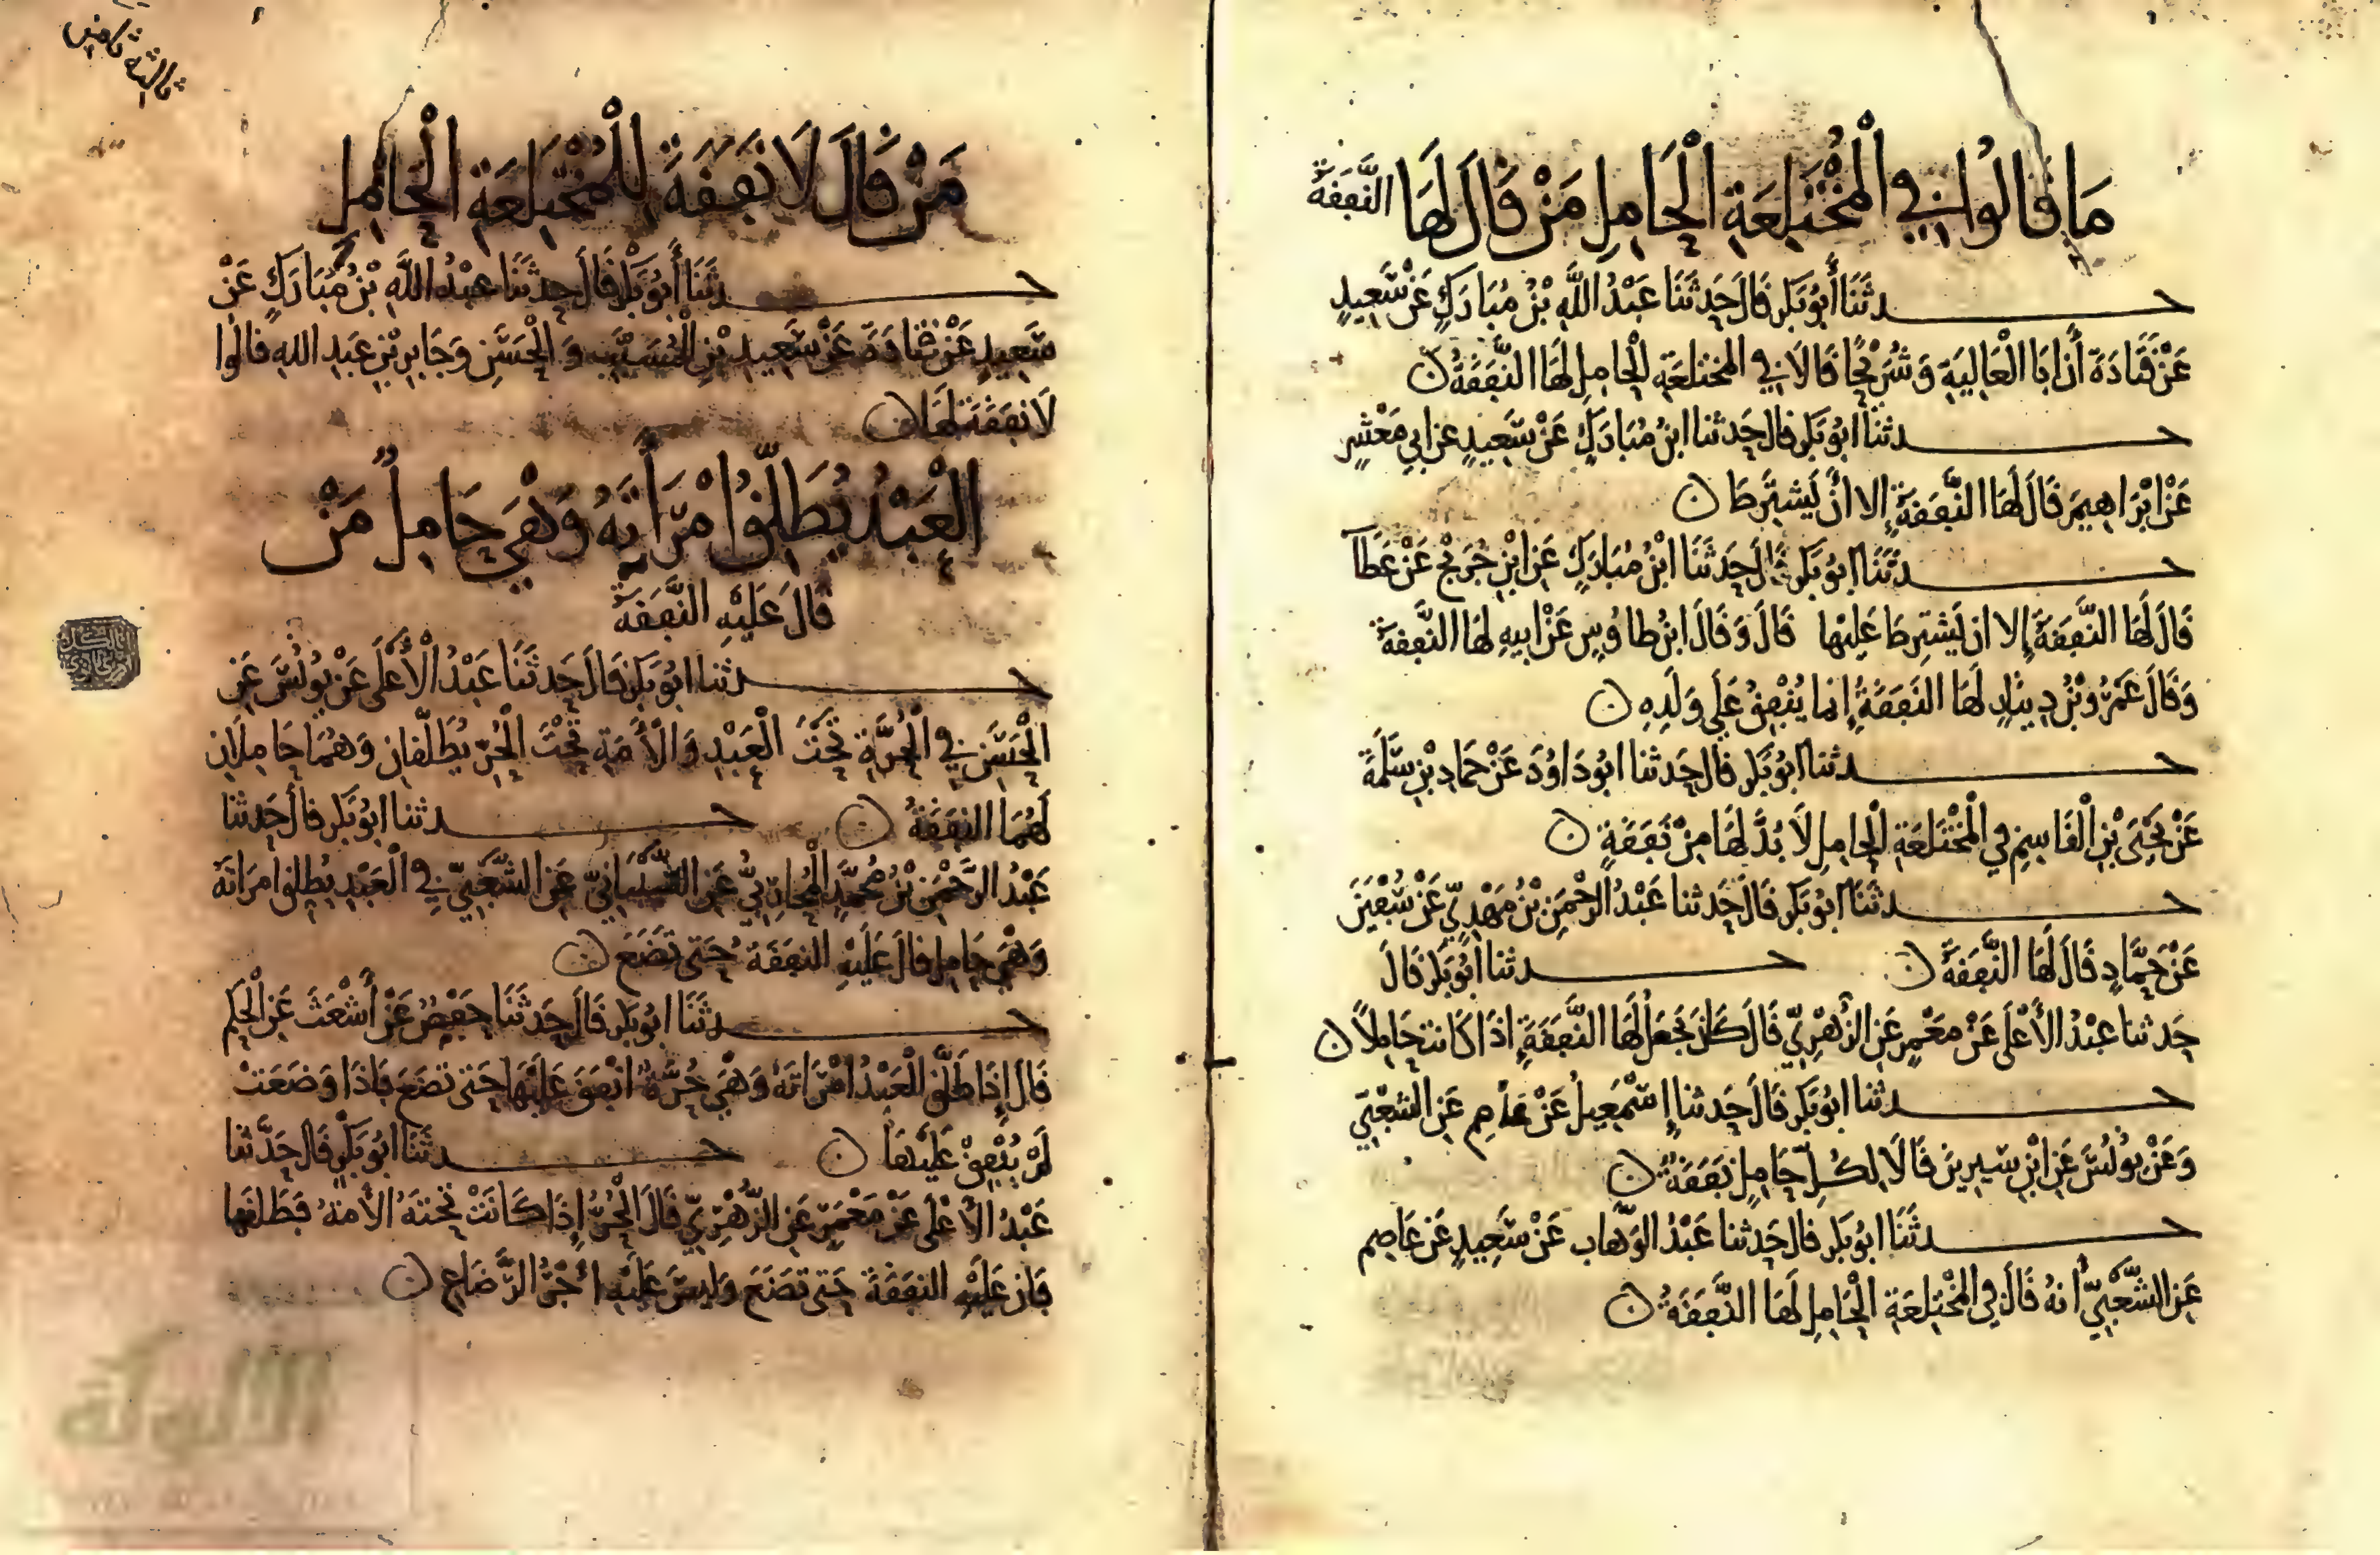 مَا قَالُوا فِي الْمُخْتَلِعَةِ الْحَامِلِ مَنْ قَالَ لَهَا النَّفَقَةُ
حدثَنَا أَبُو بَكْرٍ قَالَ حَدثَنَا عَبْدُ اللَّهِ بْنُ مُبَارَكٍ عَنْ سَعِيدٍ
عَنْ قَتَادَةَ أَنَّ أبَا الْعَالِيَةِ وَشُرَيْحًا قَالَا فِي المختلعَةِ الْحامِلِ لَهَا النَّفَقَةُ
حدثنَا ابُو بَكر قال حَدثنا ابنُ مُبَارَكٍ عَنْ سَعِيدٍ عن ابي مَعْشَرٍ
عَنْ ابْرَاهِيمَ قَالَ لَهَا النَّفَقَةُ إلا أَنْ يَشتَرِطَ
حدثَنَا ابُو بَكر قَالَ حَدثَنَا ابْنُ مُبَارَكٍ عَنِ ابْنِ جُرَيْجٍ عَنْ عَطَآ
قَالَ لَهَا النَّفَقَةُ إلا ان يَشتَرِطَ عَلَيْها قَالَ وَقَالَ ابنُ طاوُسٍ عَنْ ابيهِ لهَا النَّفقة
وَقَالَ عَمْرُو بْنُ دِينَارٍ لَهَا النَفَقَةُ إنما يُنْفِقُ عَلَى وَلَدِهِ
حدثنا ابُو بَكر قال حَدثنا ابُو دَاوُدَ عَنْ حَمَادِ بْنِ سَلَمَةَ
عَنْ يَحْيَى بْنِ الْقَاسِمِ فِي الْمُخْتَلِعَةِ الْحَامِلِ لَا بُدَّ لَهَا مِنْ نَفَقَةٍ
حدثَنَا ابُو بَكر قَالَ حَدثنا عَبْدُ الرَّحْمَنِ بْنُ مَهْدِيٍّ عَنْ سُفْيَنَ
عَنْ حَمَّادٍ قَالَ لَهَا النَّفَقَةُ حدثنا أبُو بَكر قَالَ
حَدثنا عَبْدُ الأَعْلَى عَنْ مَعْمَرٍ عَنِ الزُّهْرِيِّ قَالَ كَانَ يَجْعَلُ لَهَا النَّفَقَةَ إذَا كَانت حَامِلاً
حدثَنا ابُو بَكر قَالَ حَدثنا إسْمَعِيلُ عَنْ عَاصِم عَنِ الشَّعْبِيِّ
وَعَنْ يُونُسَ عَنِ ابْنِ سِيرِينَ قَالَا لِكُلِّ حَامِلٍ نَفَقَةٌ
حدثَنَا ابُو بَكر قال حَدثنا عَبْدُ الوَهَّاب عَنْ سَعِيدٍ عَنْ عَاصِمٍ
عَنِ الشَّعْبِيِّ أنهُ قَالَ فِي المُخْتَلِعَةِ الْحَامِلِ لَهَا النَّفَقَةُ
ثالثه ثامن
مَنْ قَالَ لَا نَفَقَةَ لِلْمُخْتَلِعَةِ الْحَامِلِ
حدثَنَا أَبُو بَكْرٍ قَالَ حَدثَنَا عَبْدُ اللَّهِ بْنُ مُبَارَكٍ عَنْ
سَعِيدٍ عَنْ قتادَةَ عَنْ سَعِيدِ بْنِ الْمُسَيَّبِ وَ الْحَسَنِ وَجَابِرِ بْنِ عَبْدِ اللهِ قَالُوا
لَا نَفَقَةَ لَهَا
الْعَبْدُ يُطَلِّقُ امْرَأَتَهُ وَهْيَ حَامِلٌ مَنْ
قَالَ عَلَيْهِ النَّفَقَةُ
حدثنا ابُو بَكر قَالَ حَدثَنَا عَبْدُ الأَعْلَى عَنْ يُونُسَ عَنِ
الْحَسَنِ فِي الْحُرَّةِ تَحْتَ الْعَبْدِ وَالأَمَةِ تَحْتَ الْحُرِّ يُطَلَّقَانِ وَهُمَا حَامِلَانِ
لَهُمَا النفَقَةُ حدثنا ابُو بَكر قال حَدثنا
عَبْدُ الرَّحْمَنِ بْنُ مُحَمَّدٍ الْمُحَارِبِيُّ عَنِ الشَّيْبَانِيِّ عَنِ الشَّعْبِيِّ فِي الْعَبْدِ يُطَلِقُ امرَاتهُ
وَهْيَ حَامِل قَالَ عَلَيْهِ النفَقَةُ حَتى تَضَعَ
حدثَنَا ابُو بَكر قَالَ حَدثَنَا حَفْصٌ عَنْ أَشْعَثَ عَنِ الْحَكَمِ
قَالَ إِذَا طَلَّقَ الْعَبْدُ امْرَاتَهُ وَهْيَ حُرَّةٌ انْفَقَ عَلَيْهَا حَتى تَضَعَ فَإذَا وَضَعَتْ
لَمْ يُنْفِقْ عَلَيْهَا حدثَنَا ابُو بَكْرٍ قَالَ حَدَّثنا
عَبْدُ الأَعْلَى عَنْ مَعْمَرٍ عَنِ الزُّهْرِيِّ قَالَ الْحُرُّ إِذَا كَانَتْ تَحْتَهُ الأَمَةُ فَطَلقَها
فَإن عَلَيْهِ النفَقَةَ حَتى تَضَعَ وَليسَ عَلَيْهِ أجْرُ الرَّضَاعِ
الألوكة